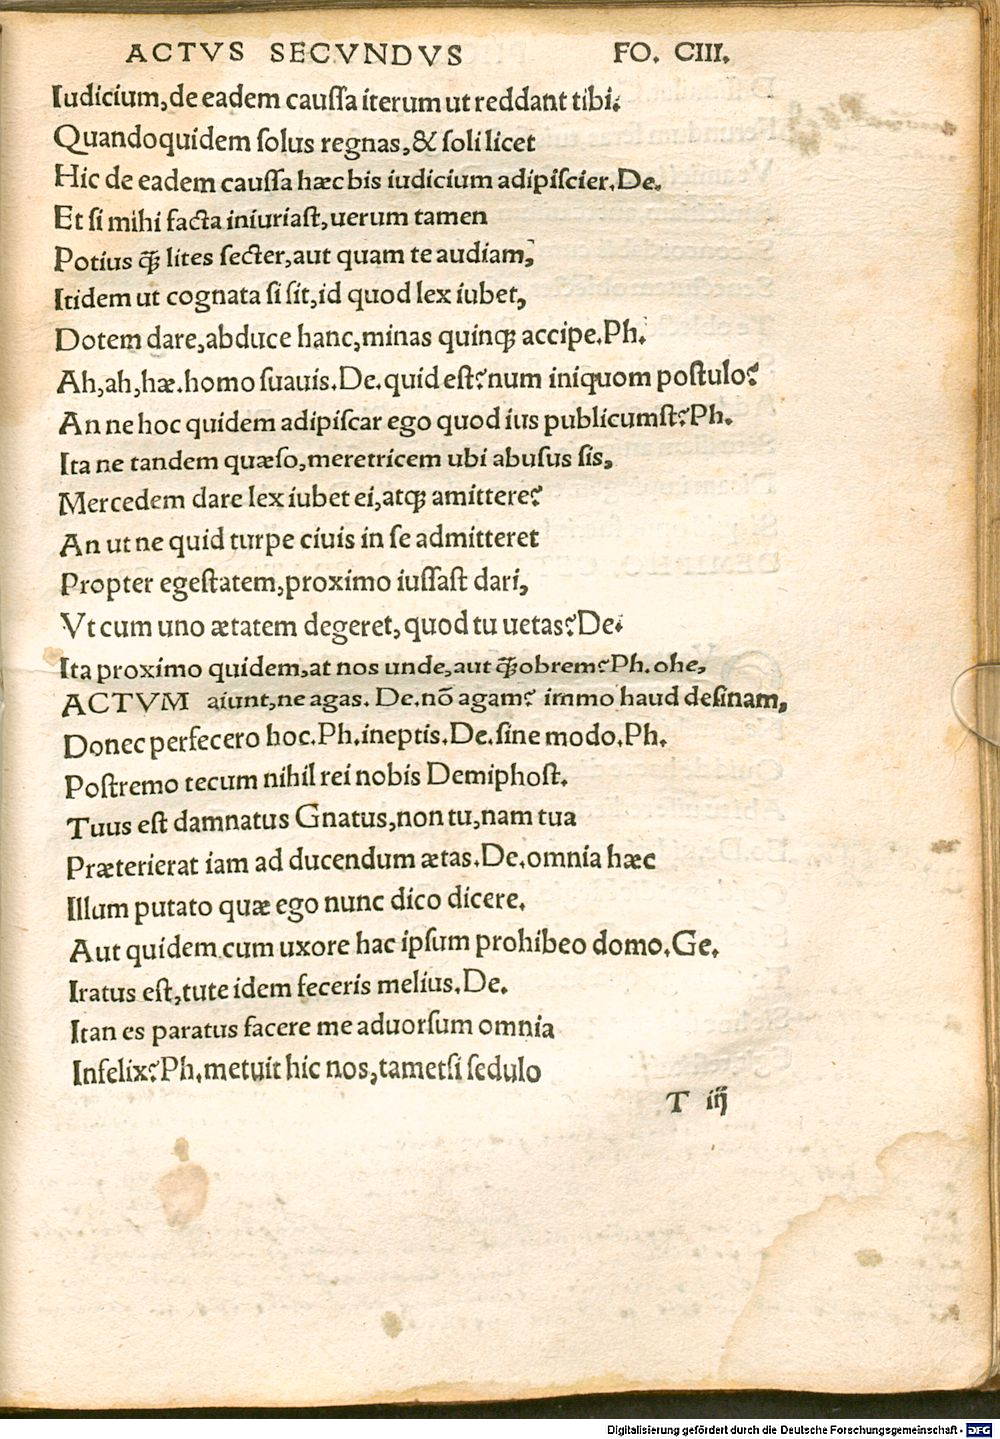 ACTVS SECVNDVS FO. CIII.
Iudicium,de eadem cauſſa iterum ut reddant tibi.
Quandoquidem ſolus regnas,& ſoli licet
Hic de eadem cauſſa hæc bis iudicium adipiſcier.De.
Et ſi mihi facta iniuriaſt,uerum tamen
Potius q̃ꝫ lites ſecter,aut quam te audiam,
Itidem ut cognata ſi ſit,id quod lex iubet,
Dotem dare,abduce hanc,minas quinqꝫ accipe.Ph.
Ah,ah,hæ.homo ſuauis.De.quid eſt?num iniquom poſtulo?
An ne hoc quidem adipiſcar ego quod ius publicumſt?Ph.
Ita ne tandem quæſo,meretricem ubi abuſus ſis,
Mercedem dare lex iubet ei,atqꝫ amittere?
An ut ne quid turpe ciuis in ſe admitteret
Propter egeſtatem,proximo iuſſaſt dari,
Vt cum uno ætatem degeret,quod tu uetas?De.
Ita proximo quidem,at nos unde,aut q̃ꝫobrem?Ph.ohe,
ACTVM aiunt,ne agas. De.nõ agam? immo haud deſinam,
Donec perfecero hoc.Ph.ineptis.De.ſine modo.Ph.
Poſtremo tecum nihil rei nobis Demiphoſt.
Tuus eſt damnatus Gnatus,non tu,nam tua
Præterierat iam ad ducendum ætas.De.omnia hæc
Illum putato quæ ego nunc dico dicere.
Aut quidem cum uxore hac ipſum prohibeo domo.Ge.
Iratus eſt,tute idem feceris melius.De.
Itan es paratus facere me aduorſum omnia
Infelix?Ph.metuit hic nos,tametſi ſedulo
T iij
Digitalisierung gefördert durch die Deutsche Forschungsgemeinschaft - DFG